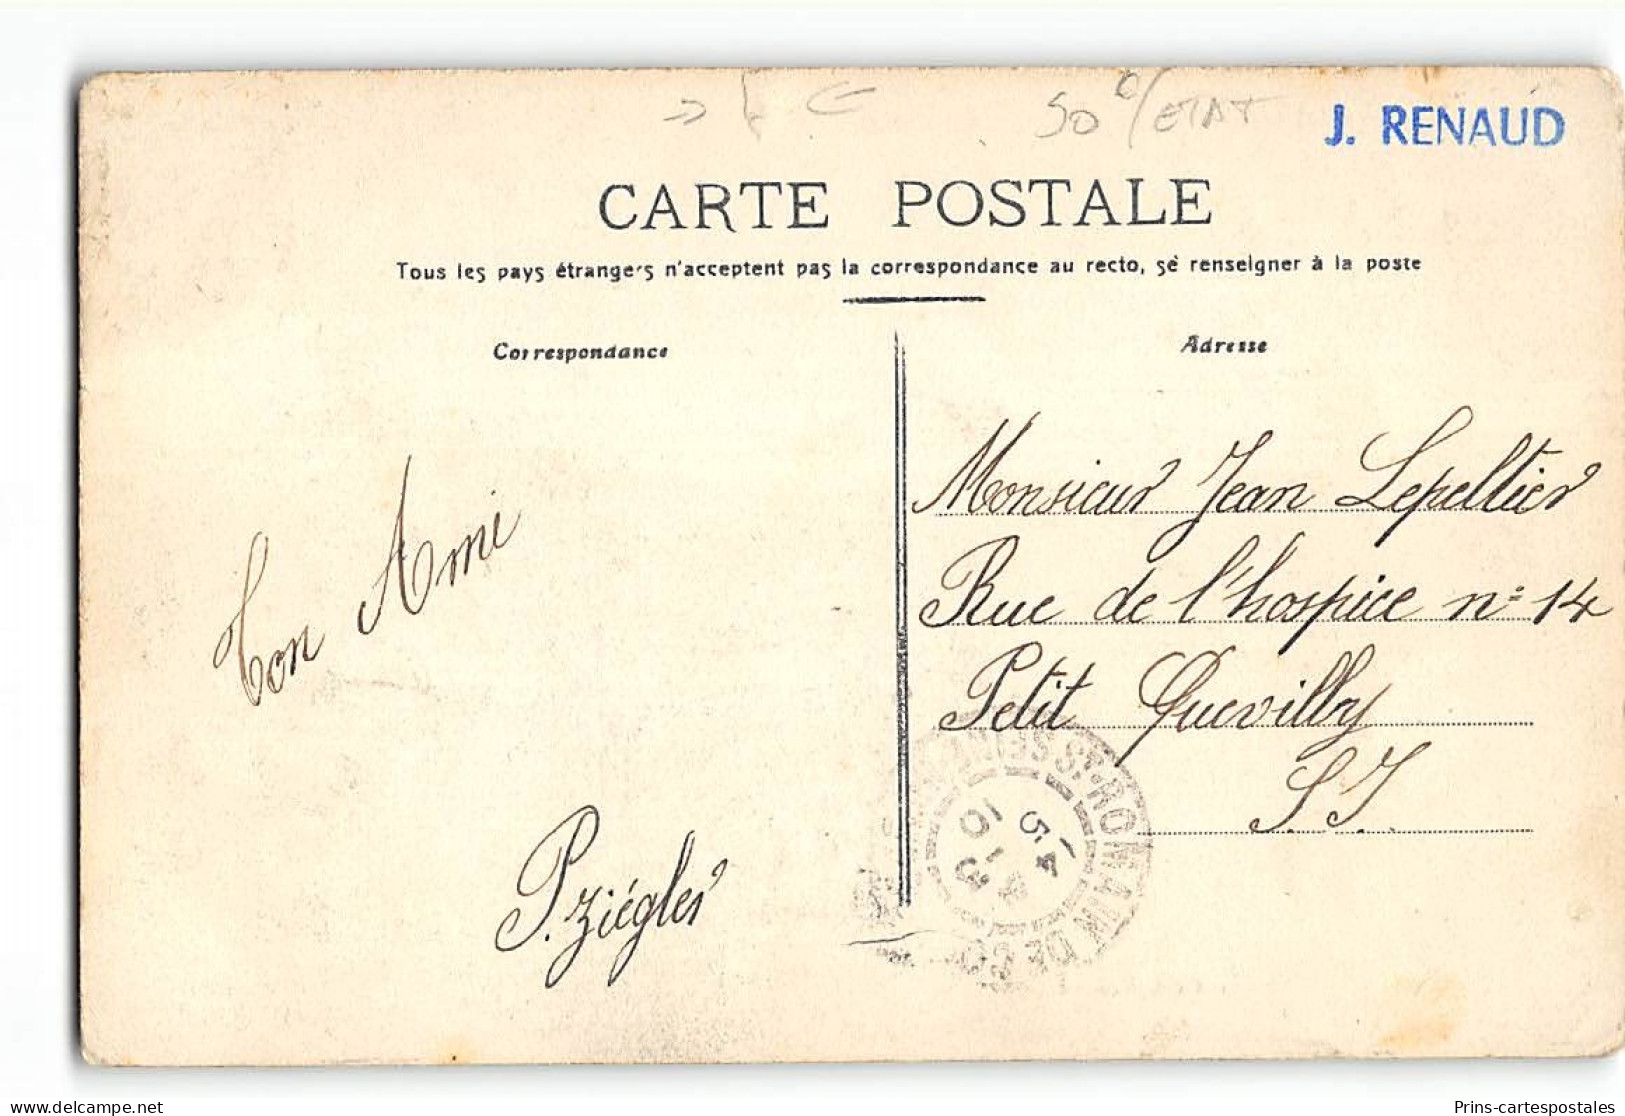 50 c/ETAT
J. RENAUD
CARTE POSTALE
Tous les pays étrangers n'acceptent pas la correspondance au recto, se renseigner à la poste
Correspondance
Adresse
Monsieur Jean Lepeltier
Rue de l'hospice n° 14
Petit Quevilly
S. I.
Ton Ami
P. Ziégler
ST ROMAIN DE CO
Prins-cartespostales.com